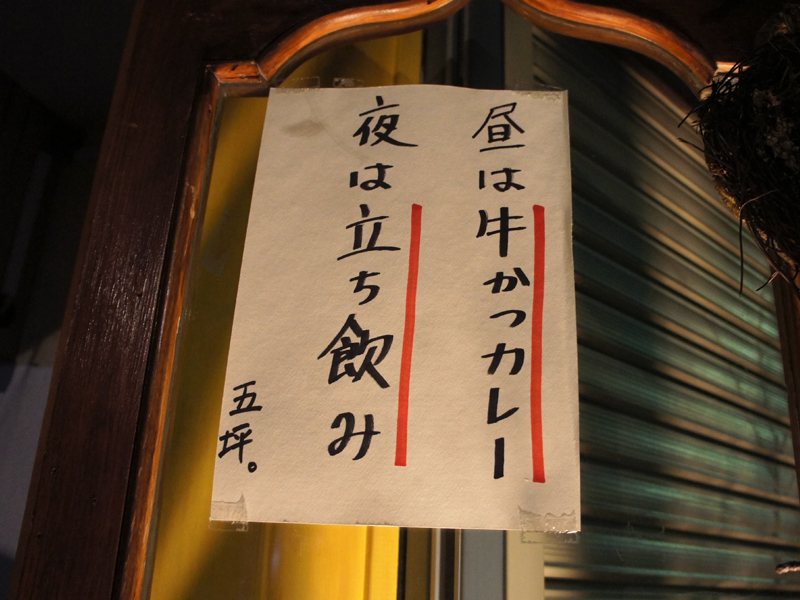 昼は牛かつカレー
夜は立ち飲み
五坪。